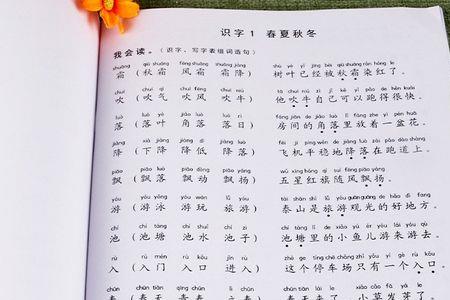 识字 1 春夏秋冬
我会读。（识字、写字表组词造句）
shuāng qiū shuāng fēng shuāng shuāng jiàng shù yè yǐ jīng bèi qiū shuāng rǎn hóng le
霜（秋霜 风霜 霜降） 树叶已经被秋霜染红了。
chuī chuī qì chuī fēng chuī niú tā chuī niú zì jǐ kě yǐ pǎo de hěn kuài
吹（吹气 吹风 吹牛） 他吹牛自己可以跑得很快。
luò luò yè jiǎo luò luò rì fáng jiān de jiǎo luò lǐ fàng zhe yì pén huā
落（落叶 角落 落日） 房间的角落里放着一盆花。
jiàng xià jiàng jiàng dī jiàng luò fēi jī píng wěn de jiàng luò zài pǎo dào shàng
降（下降 降低 降落） 飞机平稳地降落在跑道上。
piāo piāo luò piāo dòng piāo yáng wǔ xīng hóng qí suí fēng piāo yáng
飘（飘落 飘动 飘扬） 五星红旗随风飘扬。
yóu yóu yǒng yóu wán lǚ yóu tài shān shì lǚ yóu guān guāng de hǎo dì fang
游（游泳 游玩 旅游） 泰山是旅游观光的好地方。
chí chí táng shuǐ chí chí zi chí táng lǐ de xiǎo yú ér yóu lái yóu qù
池（池塘 水池 池子） 池塘里的小鱼儿游来游去。
rù rù mén rù kǒu jìn rù zhè ge tíng chē chǎng zhǐ yǒu yí gè rù kǒu
入（入门 入口 进入） 这个停车场只有一个入口。
小草发芽了。